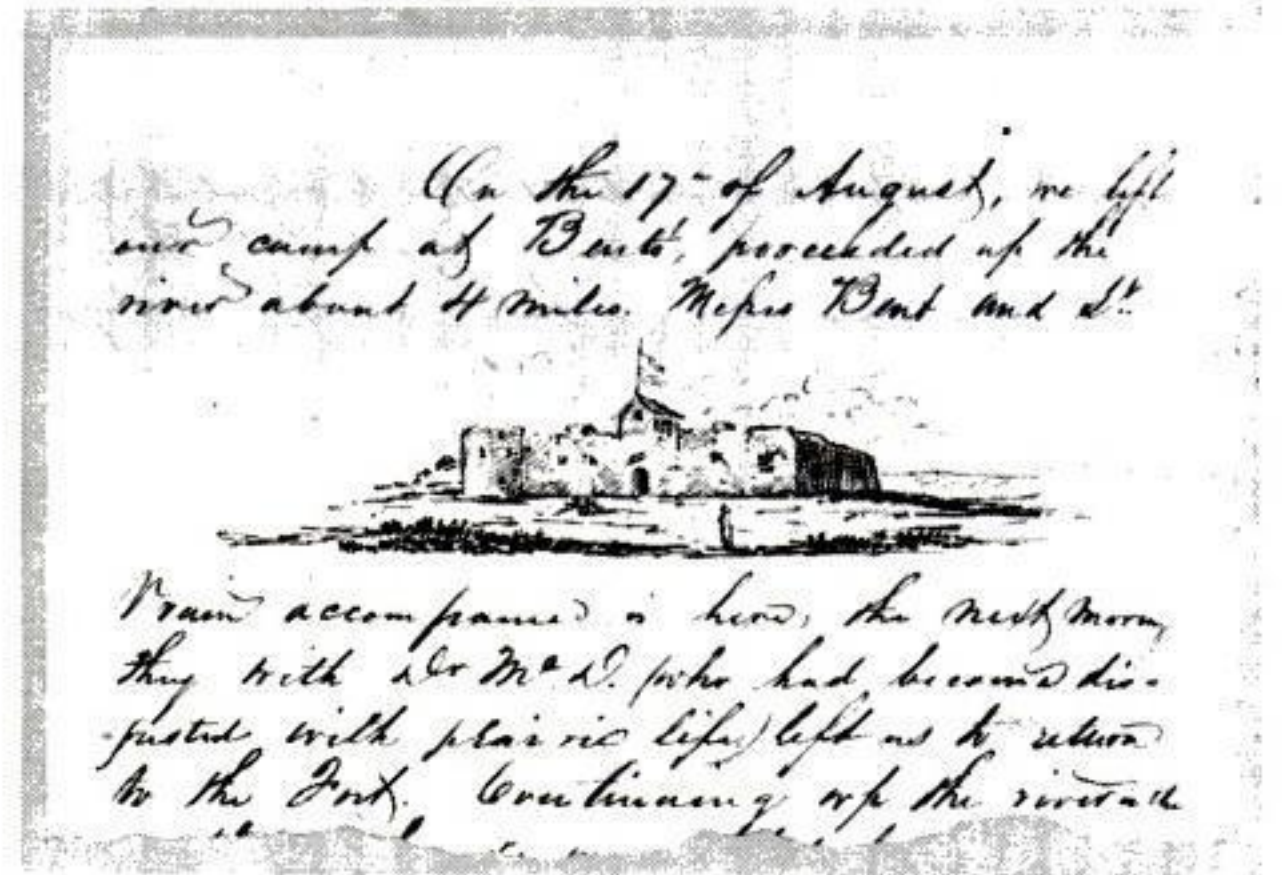 On the 17th of August, we left
our camp at Bents', proceeded up the
river about 4 miles. Messrs Bent and St.
Vrain accompanied us here, the next morn,
they with Dr McD. (who had become dis-
gusted with prairie life) left us to return
to the Fort. Continuing up the river